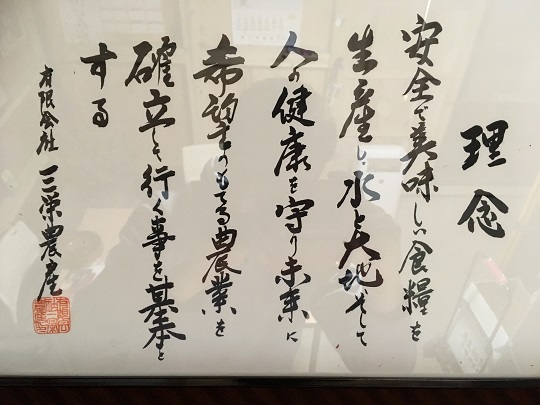 理念
安全で美味しい食糧を
生産し水と大地そして
人の健康を守り未来に
希望のもてる農業を
確立して行く事を基本と
する
有限会社 三栄農産